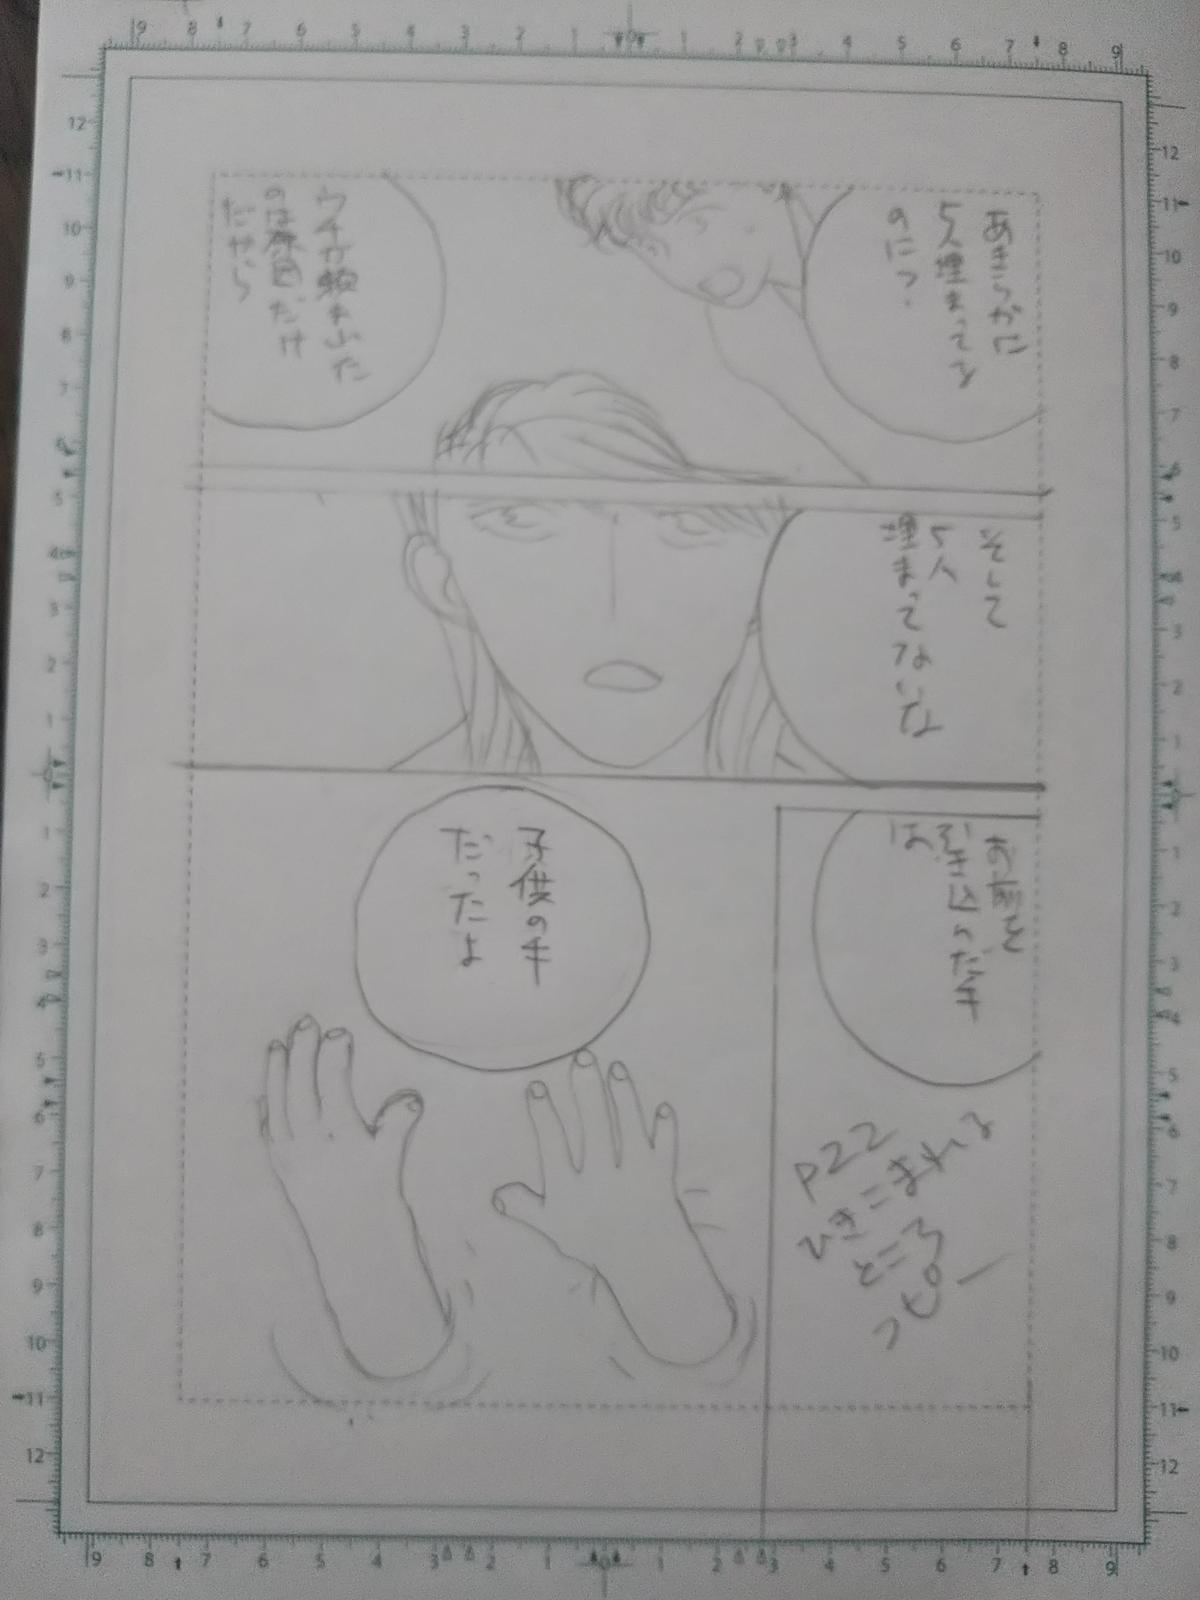 あきらかに
5人埋まってる
のにっ.
ウチが頼まれた
のは原因だけ
だから
そして
5人
埋まってないな
お前を
引き込んだ手
は
子供の手
だったよ
P22
ひきこまれる
ところ
コピー